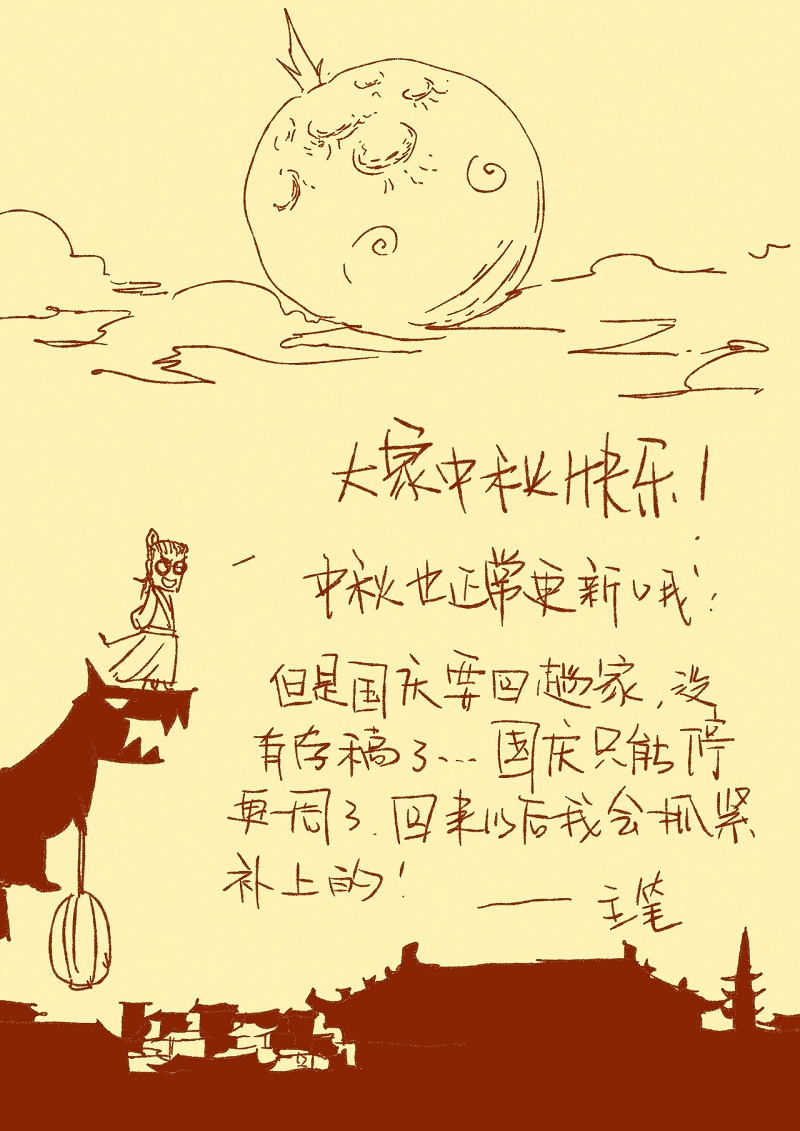 大家中秋快乐！
中秋也正常更新哦！
但是国庆要回趟家，没
有存稿了...国庆只能停
更一周了.回来以后我会抓紧
补上的！
——主笔